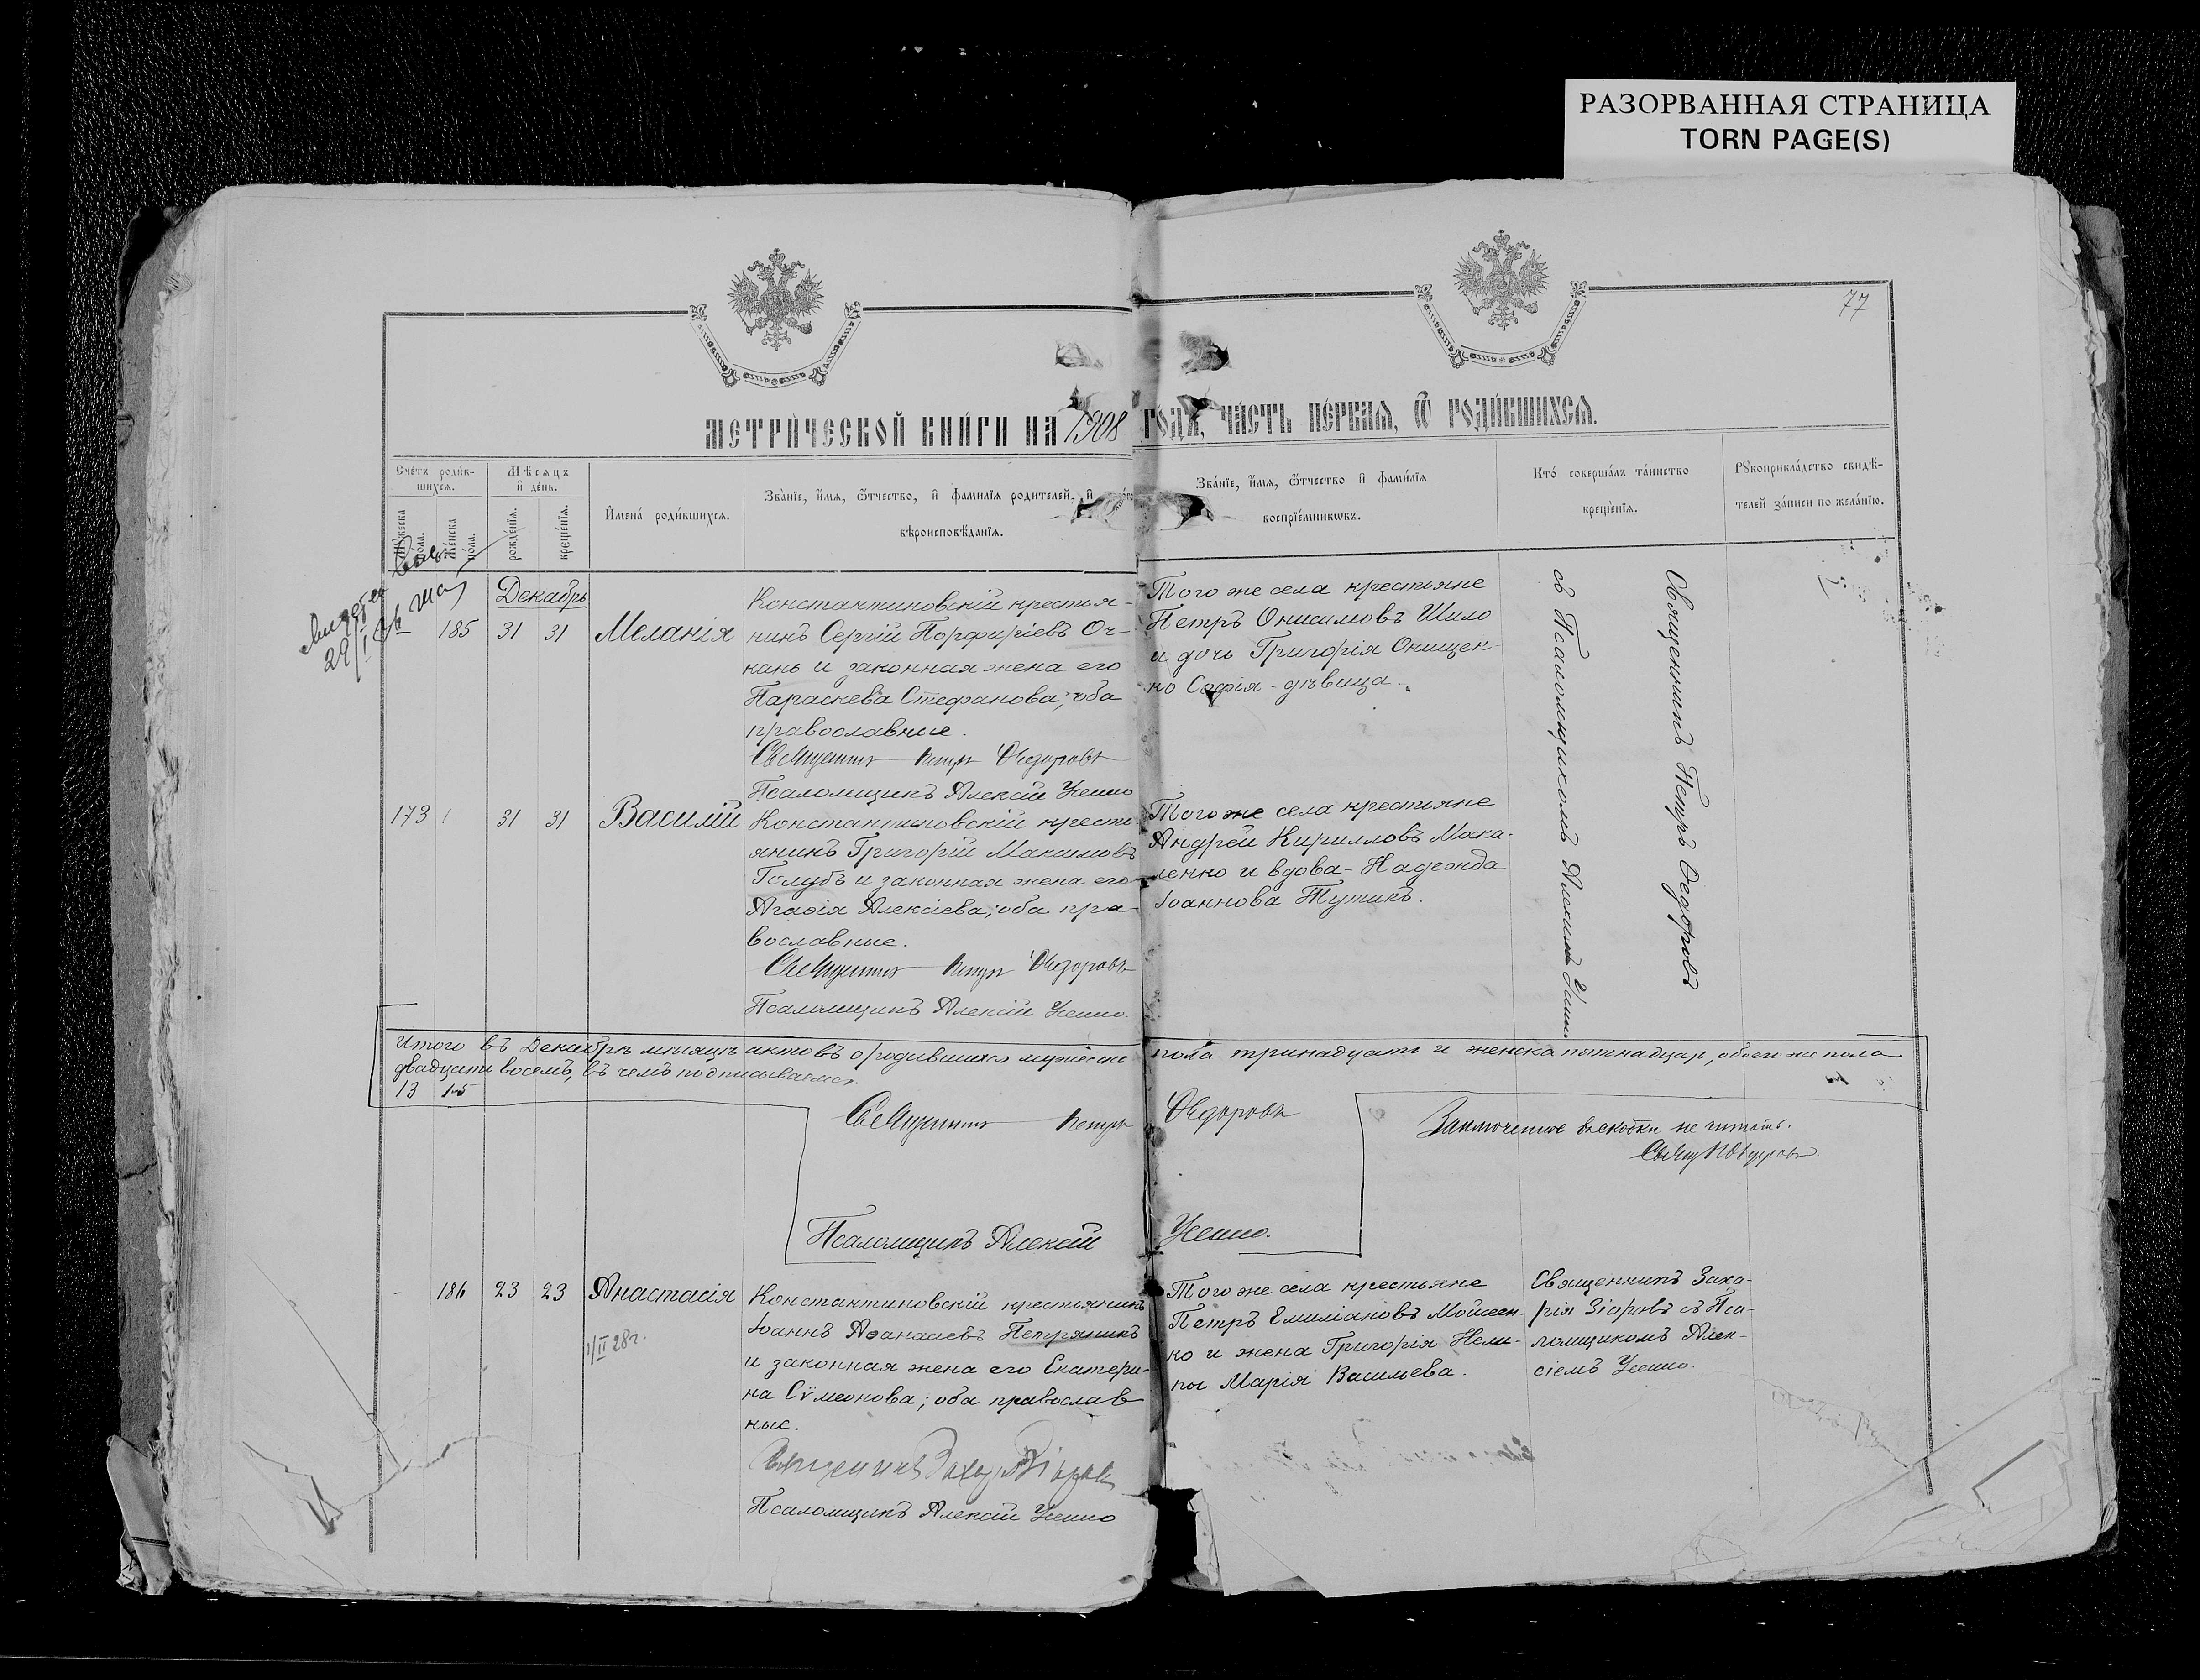 РАЗОРВАННАЯ СТРАНИЦА
TORN PAGE(S)
77
МЕТРИЧЕСКОЙ КНИГИ НА 1908 ГОДЪ, ЧАСТЬ ПЕРВАЯ, Ѿ РОДИВШИХСЯ.
Счетъ родив-
шихся.
Мужеска пола.
Женска пола.
Мѣсяцъ
и день.
рожденїя.
крещенїя.
Имена родившихся.
Званїе, имя, ѿтчество, и фамилїя родителей, и
вѣроисповѣданїя.
Званїе, имя, ѿтчество и фамилїя
воспрїемникѡвъ.
Кто совершалъ таинство
крещенїя.
Рꙋкоприкладство свидѣ-
телей записи по желанїю.
Декабрь
185 31 31 Меланія
Константиновскій крестья-
нинъ Сергій Порфиріевъ Оч-
кань и законная жена его
Параскева Стефанова; оба
православные.
Священникъ Петръ Ѳедоровъ
Псаломщикъ Алексій Усенко
Того же села крестьяне
Петръ Онисимовъ Шило
и дочь Григорія Онищен-
ко Софія - дѣвица.
Священникъ Петръ Ѳедоровъ
съ Псаломщикомъ Алексіемъ
173 31 31 Василій
Константиновскій кресть-
янинъ Григорій Максимовъ
Голубъ и законная жена его
Агаѳія Алексіева; оба пра-
вославные.
Священникъ Петръ Ѳедоровъ
Псаломщикъ Алексій Усенко.
Того же села крестьяне
Андрей Кирилловъ Мака-
ленко и вдова - Надежда
Іоаннова Тутикъ.
Итого въ Декабрѣ мѣсяцѣ актовъ о родившихся мужеска пола тринадцать и женска пятнадцать, обоего же пола
двадцать восемь, въ чемъ подписываемся.
13 15
Священникъ Петръ Ѳедоровъ
Псаломщикъ Алексій Усенко.
Заключенное въ скобки не читать.
Свящ П Ѳедоровъ.
- 186 23 23 Анастасія
1/II 28г.
Константиновскій крестьянинъ
Іоаннъ Аѳанасіевъ Петряникъ
и законная жена его Екатери-
на Сѵмеонова; оба православ
ные.
Псаломщикъ Алексій Усенко
Того же села крестьяне
Петръ Емиліановъ Мойсеен-
ко и жена Григорія Нели-
пы Марія Васильева.
Священникъ Заха-
рія Зіоровъ съ Пса-
ломщикомъ Алек-
сіемъ Усенко.